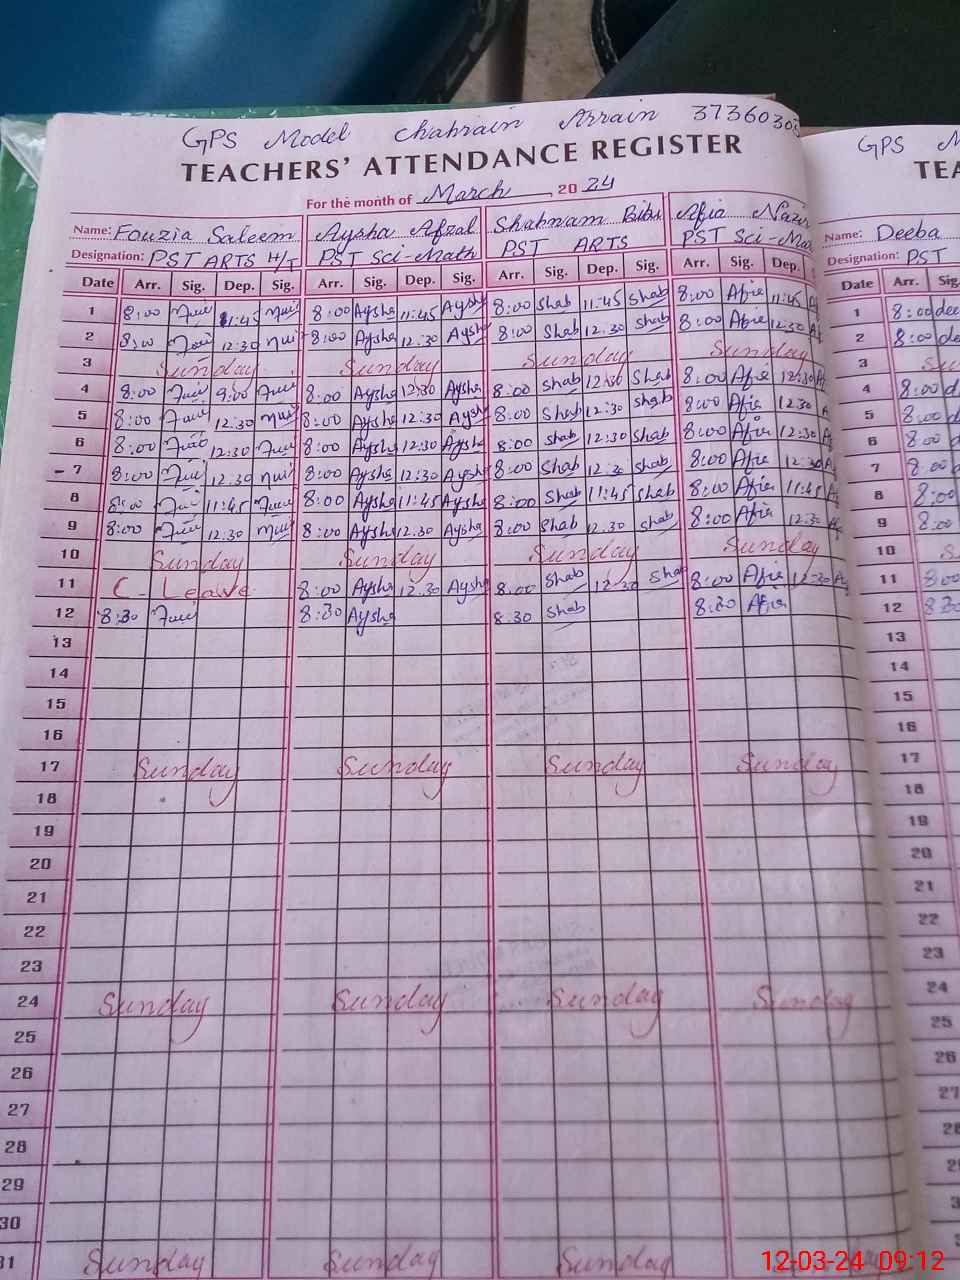 GPS Model Chahrain Arrain 3736030
GPS
TEACHERS' ATTENDANCE REGISTER
For the month of March, 20 24
Name: Fouzia Saleem Aysha Afzal Shabnam Bibi Afia Nazir Name: Deeba
Designation: PST ARTS H/T PST Sci-Math PST ARTS PST Sci-Ma Designation: PST
Date Arr. Sig. Dep. Sig. Arr. Sig. Dep. Sig. Arr. Sig. Dep. Sig. Arr. Sig. Dep. Date Arr. Sig.
1 8:00 11:45 8:00 Aysha 11:45 Aysha 8:00 Shab 11:45 Shab 8:00 Afia 11:45 1 8:00 dee
2 8:00 12:30 8:00 Aysha 12:30 Aysha 8:00 Shab 12:30 Shab 8:00 Afia 12:30 2 8:00
3 Sunday Sunday Sunday Sunday 3
4 8:00 9:00 8:00 Aysha 12:30 Aysha 8:00 Shab 12:30 Shab 8:00 Afia 12:30 4 8:00
5 8:00 12:30 8:00 Aysha 12:30 Aysha 8:00 Shab 12:30 Shab 8:00 Afia 12:30 5 8:00
6 8:00 12:30 8:00 Aysha 12:30 Aysha 8:00 Shab 12:30 Shab 8:00 Afia 12:30 6 8:00
7 8:00 12:30 8:00 Aysha 12:30 Aysha 8:00 Shab 12:30 Shab 8:00 Afia 12:30 7 8:00
8 8:00 11:45 8:00 Aysha 11:45 Aysha 8:00 Shab 11:45 Shab 8:00 Afia 11:45 8 8:00
9 8:00 12:30 8:00 Aysha 12.30 Aysha 8:00 Shab 12.30 Shab 8:00 Afia 12:30 9 8:00
10 Sunday Sunday Sunday Sunday 10
11 C- Leave 8:00 Aysha 12:30 Aysha 8:00 Shab 12:30 Shab 8:00 Afia 12:30 11 8:00
12 8:30 8:30 Aysha 8:30 Shab 8:30 Afia 12 8:30
13 13
14 14
15 15
16 16
17 Sunday Sunday Sunday Sunday 17
18 18
19 19
20 20
21 21
22 22
23 23
24 Sunday Sunday Sunday Sunday 24
25 25
26 26
27 27
28
29
30
31 Sunday Sunday Sunday
12-03-24 09:12